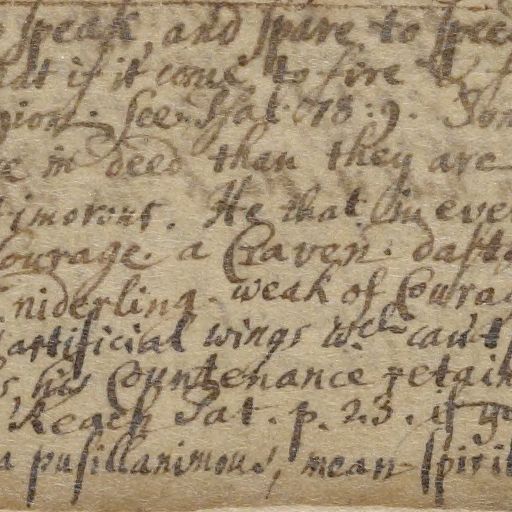 speak, and spare to spee
at if it come to fire &
gion. see Psal. 78:9. Som
e in deed than they are
timorous. He that in eve
Courage. a Craven. dasta
niderling. weak of Coura
artificial wings wch can't
s his Countenance retain
Keach Sat. p. 23. if ye
a pusillanimous, mean spirit